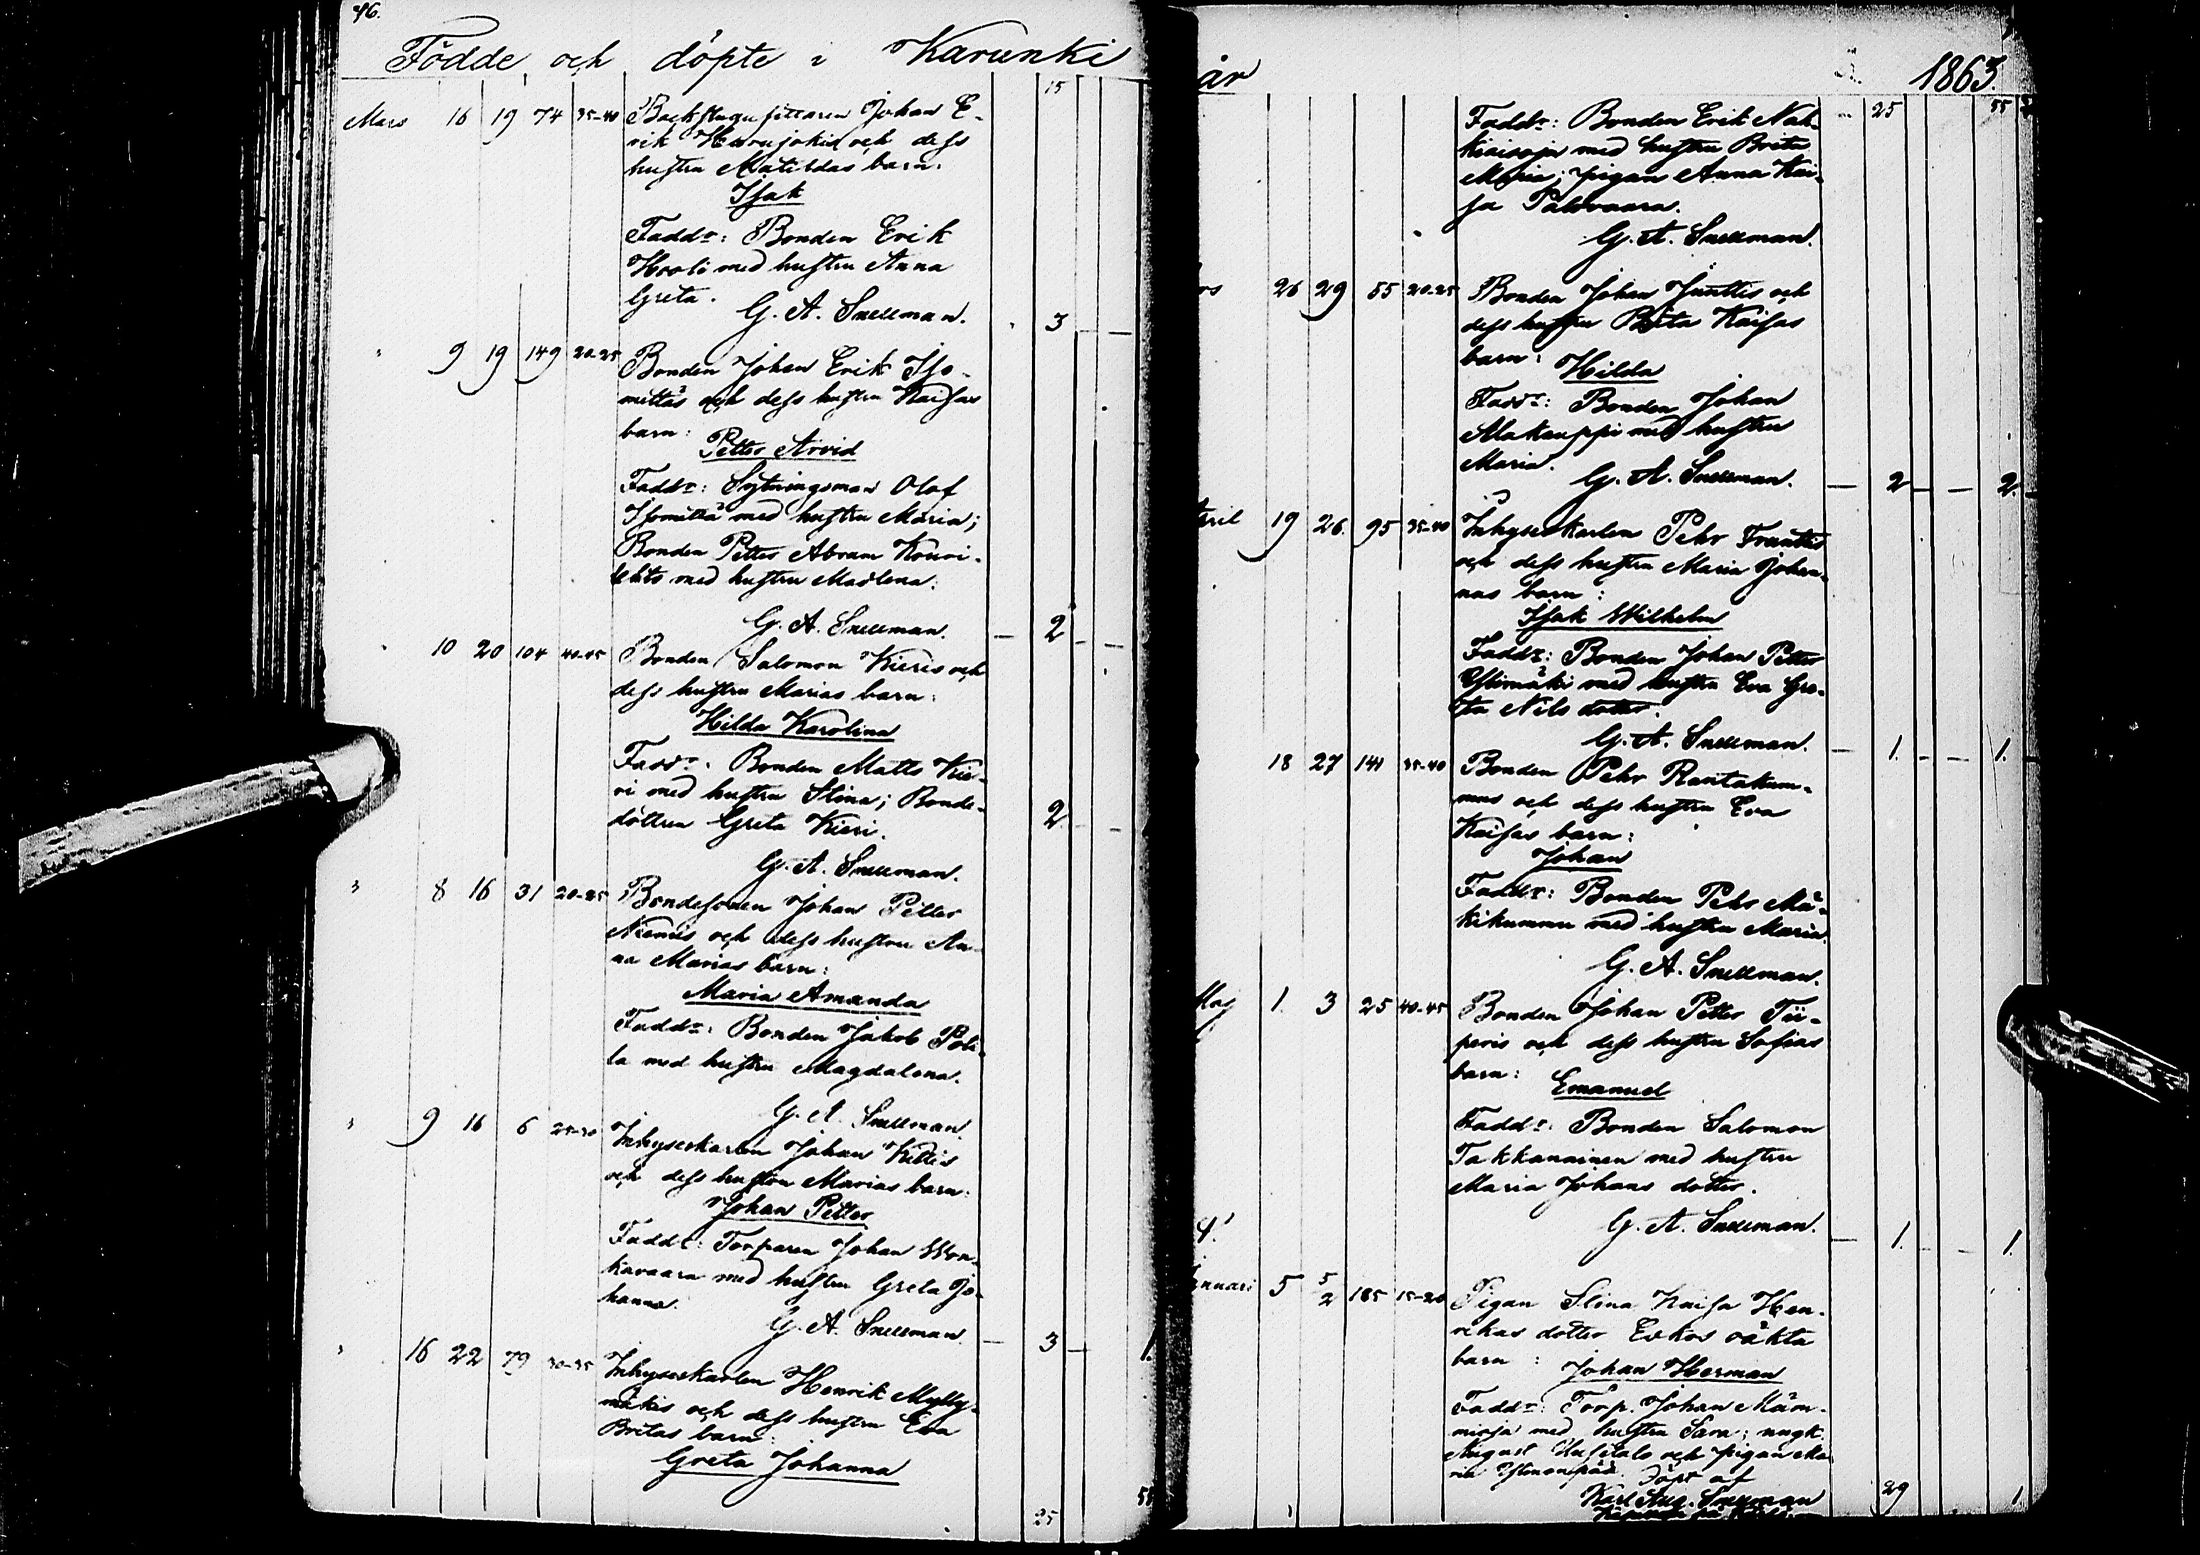 46.
Födde och döpte i Karunki
15
Mars 16 19 74 35-40 Backstugusittaren Johan E-
rik och dess
hustru Matildas barn:
Isak
Faddr: Bonden Erik
med hustru Anna
Greta.
G. A. Snellman.
3
" 9 19 149 20-25 Bonden Johan Erik Iso-
mettäs och dess hustru Kaisas
barn:
Petter Arvid
Faddr: Sytningsman Olof
Isomettä med hustru Maria;
Bonden Petter Abram Kouri-
lehto med hustru Madlena.
G. A. Snellman.
— 2 — —
" 10 20 104 40-45 Bonden Salomon Kieris och
dess hustru Marias barn:
Hilda Karolina
Faddr: Bonden Matts Kie-
ri med hustru Stina; Bonde-
dottren Greta Kieri.
2 — —
G. A. Snellman.
" 8 16 31 20-25 Bondesonen Johan Petter
Niemis och dess hustru An-
na Marias barn:
Maria Amanda
Faddr: Bonden Jakob
la med hustru Magdalena.
G. A. Snellman.
" 9 16 6 25-30 Inhyseskarlen Johan Kittis
och dess hustru Marias barn:
Johan Petter
Faddr: Torparen Johan Won-
kavaara med hustru Greta Jo-
hanna.
G. A. Snellman
— 3 — 1.
" 16 22 79 30-35 Inhyseskarlen Henrik Mylly-
mäkis och dess hustru Eva
Britas barn:
Greta Johanna
25 55
år 1863.
25 55
Faddr: Bonden Erik Nah-
kiaisoja med hustru Brita
Maria; pigan Anna Kai-
sa Palovaara.
G. A. Snellman.
26 29 85 20-25 Bonden Johan Junttis och
dess hustru Brita Kaisas
barn: Hilda
Faddr: Bonden Johan
Makauppi med hustru
Maria.
G. A. Snellman.
— 2 — — 2.
April 19 26. 95 35-40 Inhyseskarlen Pehr Franttis
och dess hustru Maria Johan-
nas barn:
Isak Wilhelm
Faddr: Bonden Johan Petter
Ylimäki med hustru Eva Gre-
ta Nils dotter.
G. A. Snellman.
— 1. — — 1.
18 27 141 35-40 Bonden Pehr Rantakum-
mus och dess hustru Eva
Kaisas barn:
Johan
Faddr: Bonden Pehr Mä-
kikummu med hustru Maria.
G. A. Snellman.
Maj 1. 3 25 40-45 Bonden Johan Petter Tii-
peris och dess hustru Sofias
barn: Emanuel
Faddr: Bonden Salomon
Takkanainen med hustru
Maria Johans dotter.
G. A. Snellman.
— 1. — — 1.
Januari 5 5/2 185 15-20 Pigan Stina Kaisa Hen-
rikas dotter Erkos oäkta
barn:
Johan Herman
Faddr: Torp. Johan Mäm-
mioja med hustru Sara; nngk.
August och pigan Ma-
ria Döpt af
Karl Aug. Snellman
29 1